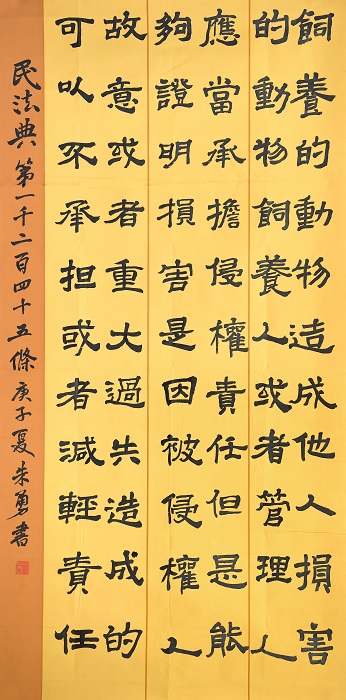 飼養的動物造成他人損害
的動物飼養人或者管理人
應當承擔侵權責任但是能
夠證明損害是因被侵權人
故意或者重大過失造成的
可以不承担或者減輕責任
民法典第一千二百四十五條庚子夏朱勇書